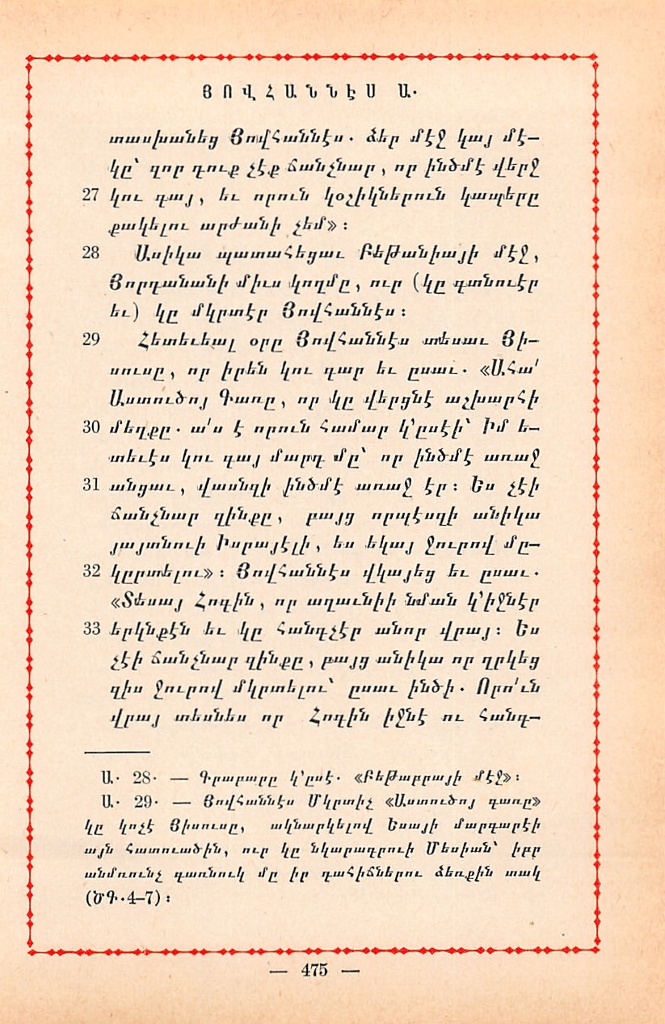 ՅՈՎՀԱՆՆԷՍ Ա.
տասխանեց Յովհաննէս. ձեր մէջ կայ մէ—
կը՝ զոր դուք չէք ճանչնար, որ ինծմէ վերջ
27 կու գայ, եւ որուն կօշիկներուն կապերը
քակելու արժանի չեմ»։
28 Ասիկա պատահեցաւ Բեթանիայի մէջ,
Յորդանանի միւս կողմը, ուր (կը գտնուէր
եւ) կը մկրտէր Յովհաննէս։
29 Հետեւեալ օրը Յովհաննէս տեսաւ Յի—
սուսը, որ իրեն կու գար եւ ըսաւ. «Ահա՛
Աստուծոյ Գառը, որ կը վերցնէ աշխարհի
30 մեղքը. ա՛ս է որուն համար կ՚ըսէի՝ Իմ ե—
տեւէս կու գայ մարդ մը՝ որ ինծմէ առաջ
31 անցաւ, վասնզի ինծմէ առաջ էր։ Ես չէի
ճանչնար զինքը, բայց որպէսզի անիկա
յայտնուի Իսրայէլի, ես եկայ ջուրով մը—
32 կըրտելու»։ Յովհաննէս վկայեց եւ ըսաւ.
«Տեսայ Հոգին, որ աղաւնիի նման կ՚իջնէր
33 երկնքէն եւ կը հանգչէր անոր վրայ։ Ես
չէի ճանչնար զինքը, բայց անիկա որ ղրկեց
զիս ջուրով մկրտելու՝ ըսաւ ինծի. Որո՛ւն
վրայ տեսնես որ Հոգին իջնէ ու հանգ—
Ա. 28. — Գրաբարը կ՚ըսէ. «Բեթաբրայի մէջ»։
Ա. 29. — Յովհաննէս Մկրտիչ «Աստուծոյ գառը»
կը կոչէ Յիսուսը, ակնարկելով Եսայի մարգարէի
այն հատուածին, ուր կը նկարագրուի Մեսիան՝ իբր
անմռունչ գառնուկ մը իր դահիճներու ձեռքին տակ
(ԾԳ.4—7)։
— 475 —